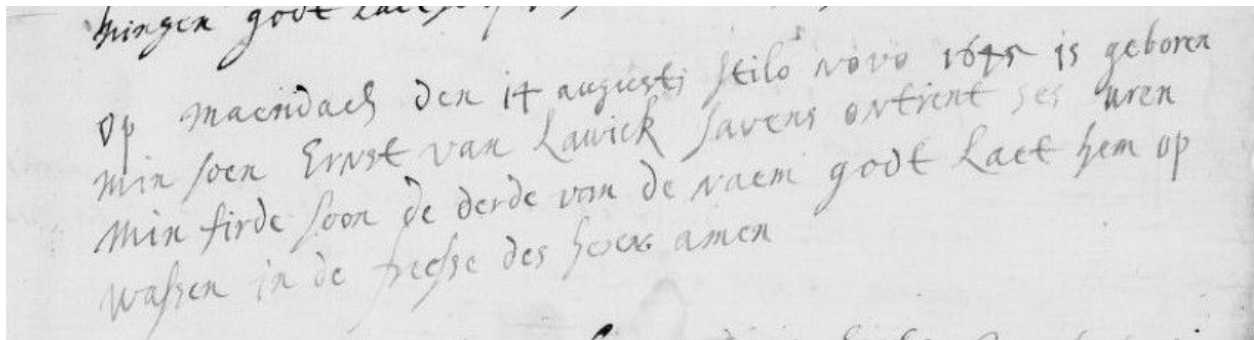 mingen godt
op maendach den 14 augusti stilo novo 1645 is geboren
min soen Ernst van Lawick savens ontrent ses uren
min firde soon de derde van de naem godt Laet hem op
wassen in de freesse des heren amen